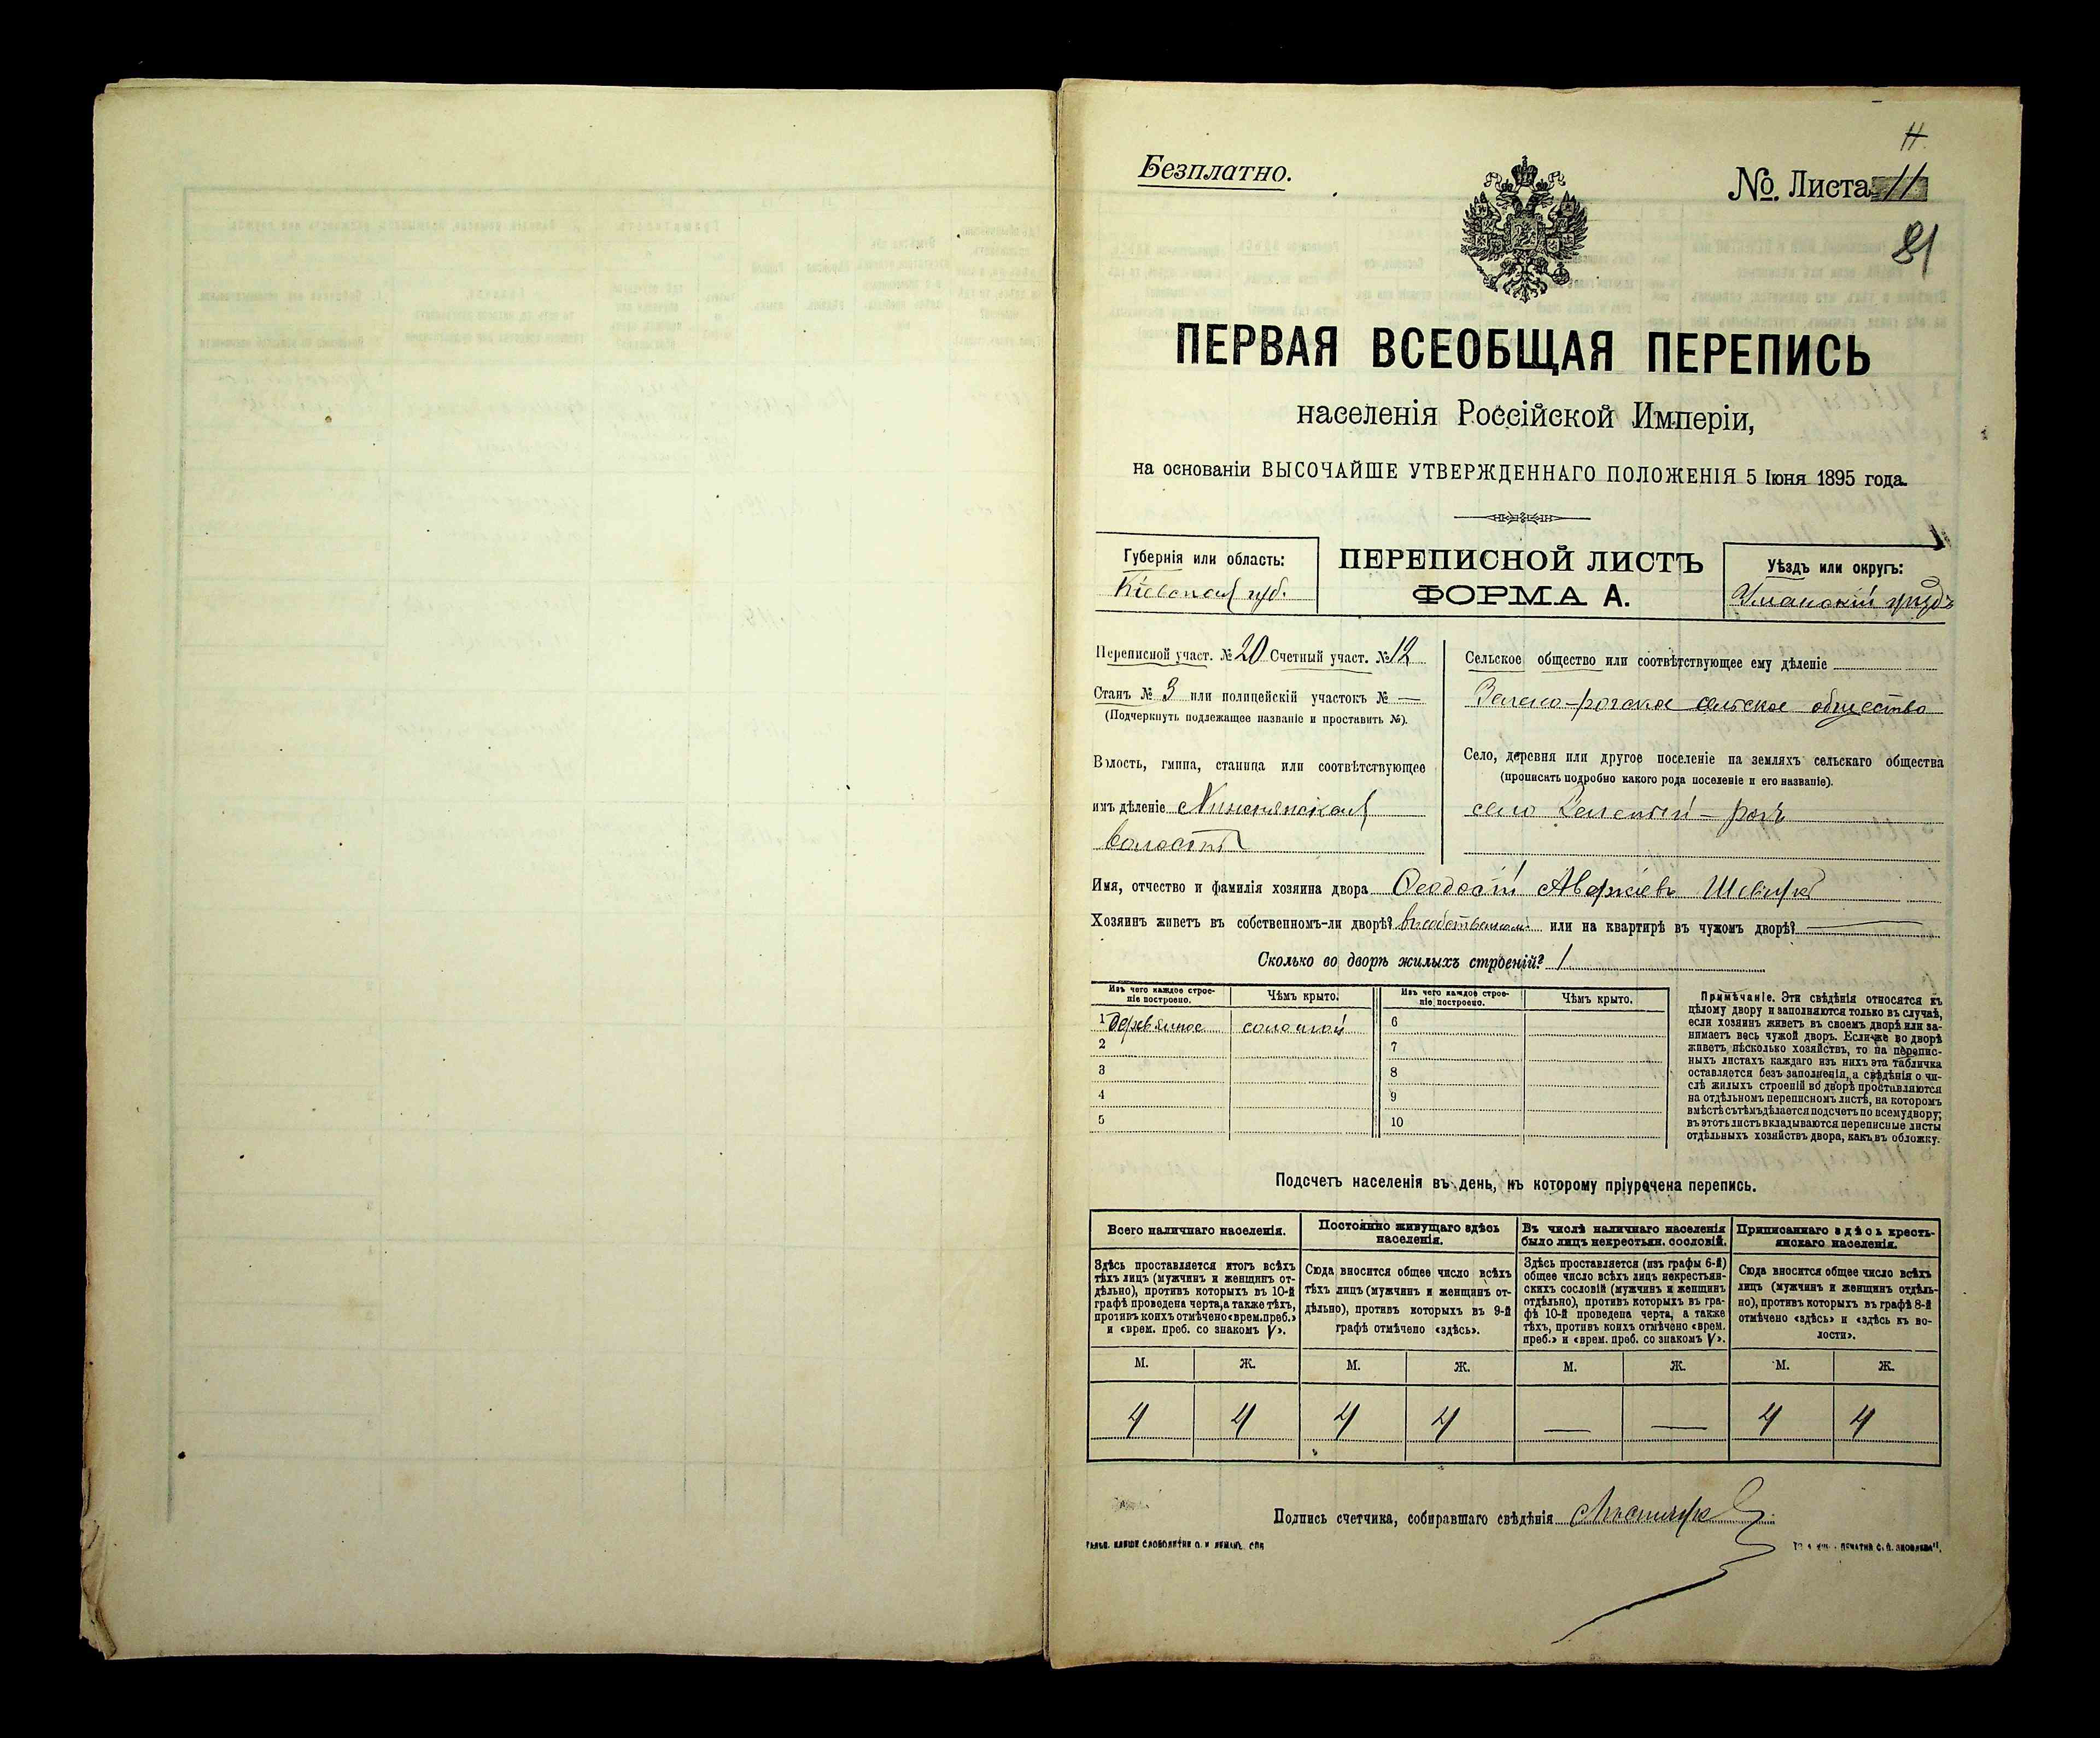 Н.
Безплатно.
№. Листа 11
81
ПЕРВАЯ ВСЕОБЩАЯ ПЕРЕПИСЬ
населенія Россійской Имперіи,
на основаніи ВЫСОЧАЙШЕ УТВЕРЖДЕННАГО ПОЛОЖЕНІЯ 5 Іюня 1895 года.
Губернія или область:
Кіевская губ.
ПЕРЕПИСНОЙ ЛИСТЪ
ФОРМА А.
Уѣздъ или округъ:
Уманскій уѣздъ
Переписной участ. № 20 Счетный участ. № 12
Станъ № 3 или полицейскій участокъ № —
(Подчеркнуть подлежащее названіе и проставить №).
Волость, гмина, станица или соотвѣтствующее
имъ дѣленіе
волость
Сельское общество или соотвѣтствующее ему дѣленіе
Зелено-рогское сельское общество
Село, деревня или другое поселеніе на земляхъ сельскаго общества
(прописать подробно какого рода поселеніе и его названіе).
село Зеленый-рогъ
Имя, отчество и фамилія хозяина двора Ѳеодосій Аверкіевъ
Хозяинъ живетъ въ собственномъ-ли дворѣ? въ собственномъ или на квартирѣ въ чужомъ дворѣ? —
Сколько во дворѣ жилыхъ строеній? 1
Изъ чего каждое строе-
ніе построено.
Чѣмъ крыто.
Изъ чего каждое строе-
ніе построено.
Чѣмъ крыто.
1 деревянное соломой 6
2 7
3 8
4 9
5 10
Примѣчаніе. Эти свѣдѣнія относятся къ
цѣлому двору и заполняются только въ случаѣ,
если хозяинъ живетъ въ своемъ дворѣ или за-
нимаетъ весь чужой дворъ. Если-же во дворѣ
живетъ нѣсколько хозяйствъ, то на перепис-
ныхъ листахъ каждаго изъ нихъ эта табличка
оставляется безъ заполненія, а свѣдѣнія о чи-
слѣ жилыхъ строеній во дворѣ проставляются
на отдѣльномъ переписномъ листѣ, на которомъ
вмѣстѣ съ тѣмъ дѣлается подсчетъ по всему двору;
въ этотъ листъ вкладываются переписные листы
отдѣльныхъ хозяйствъ двора, какъ въ обложку.
Подсчетъ населенія въ день, къ которому пріурочена перепись.
Всего наличнаго населенія.
Здѣсь проставляется итогъ всѣхъ
тѣхъ лицъ (мужчинъ и женщинъ от-
дѣльно), противъ которыхъ въ 10-й
графѣ проведена черта, а также тѣхъ,
противъ коихъ отмѣчено «врем. преб.»
и «врем. преб. со знакомъ V».
Постоянно живущаго здѣсь
населенія.
Сюда вносится общее число всѣхъ
тѣхъ лицъ (мужчинъ и женщинъ от-
дѣльно), противъ которыхъ въ 9-й
графѣ отмѣчено «здѣсь».
Въ числѣ наличнаго населенія
было лицъ некрестьян. сословій.
Здѣсь проставляется (изъ графы 6-й)
общее число всѣхъ лицъ некрестьян-
скихъ сословій (мужчинъ и женщинъ
отдѣльно), противъ которыхъ въ гра-
фѣ 10-й проведена черта, а также
тѣхъ, противъ коихъ отмѣчено «врем.
преб.» и «врем. преб. со знакомъ V».
Приписаннаго здѣсь кресть-
янскаго населенія.
Сюда вносится общее число всѣхъ
лицъ (мужчинъ и женщинъ отдѣль-
но), противъ которыхъ въ графѣ 8-й
отмѣчено «здѣсь» и «здѣсь къ во-
лости».
М. Ж. М. Ж. М. Ж. М. Ж.
4 4 4 4 — — 4 4
Подпись счетчика, собиравшаго свѣдѣнія